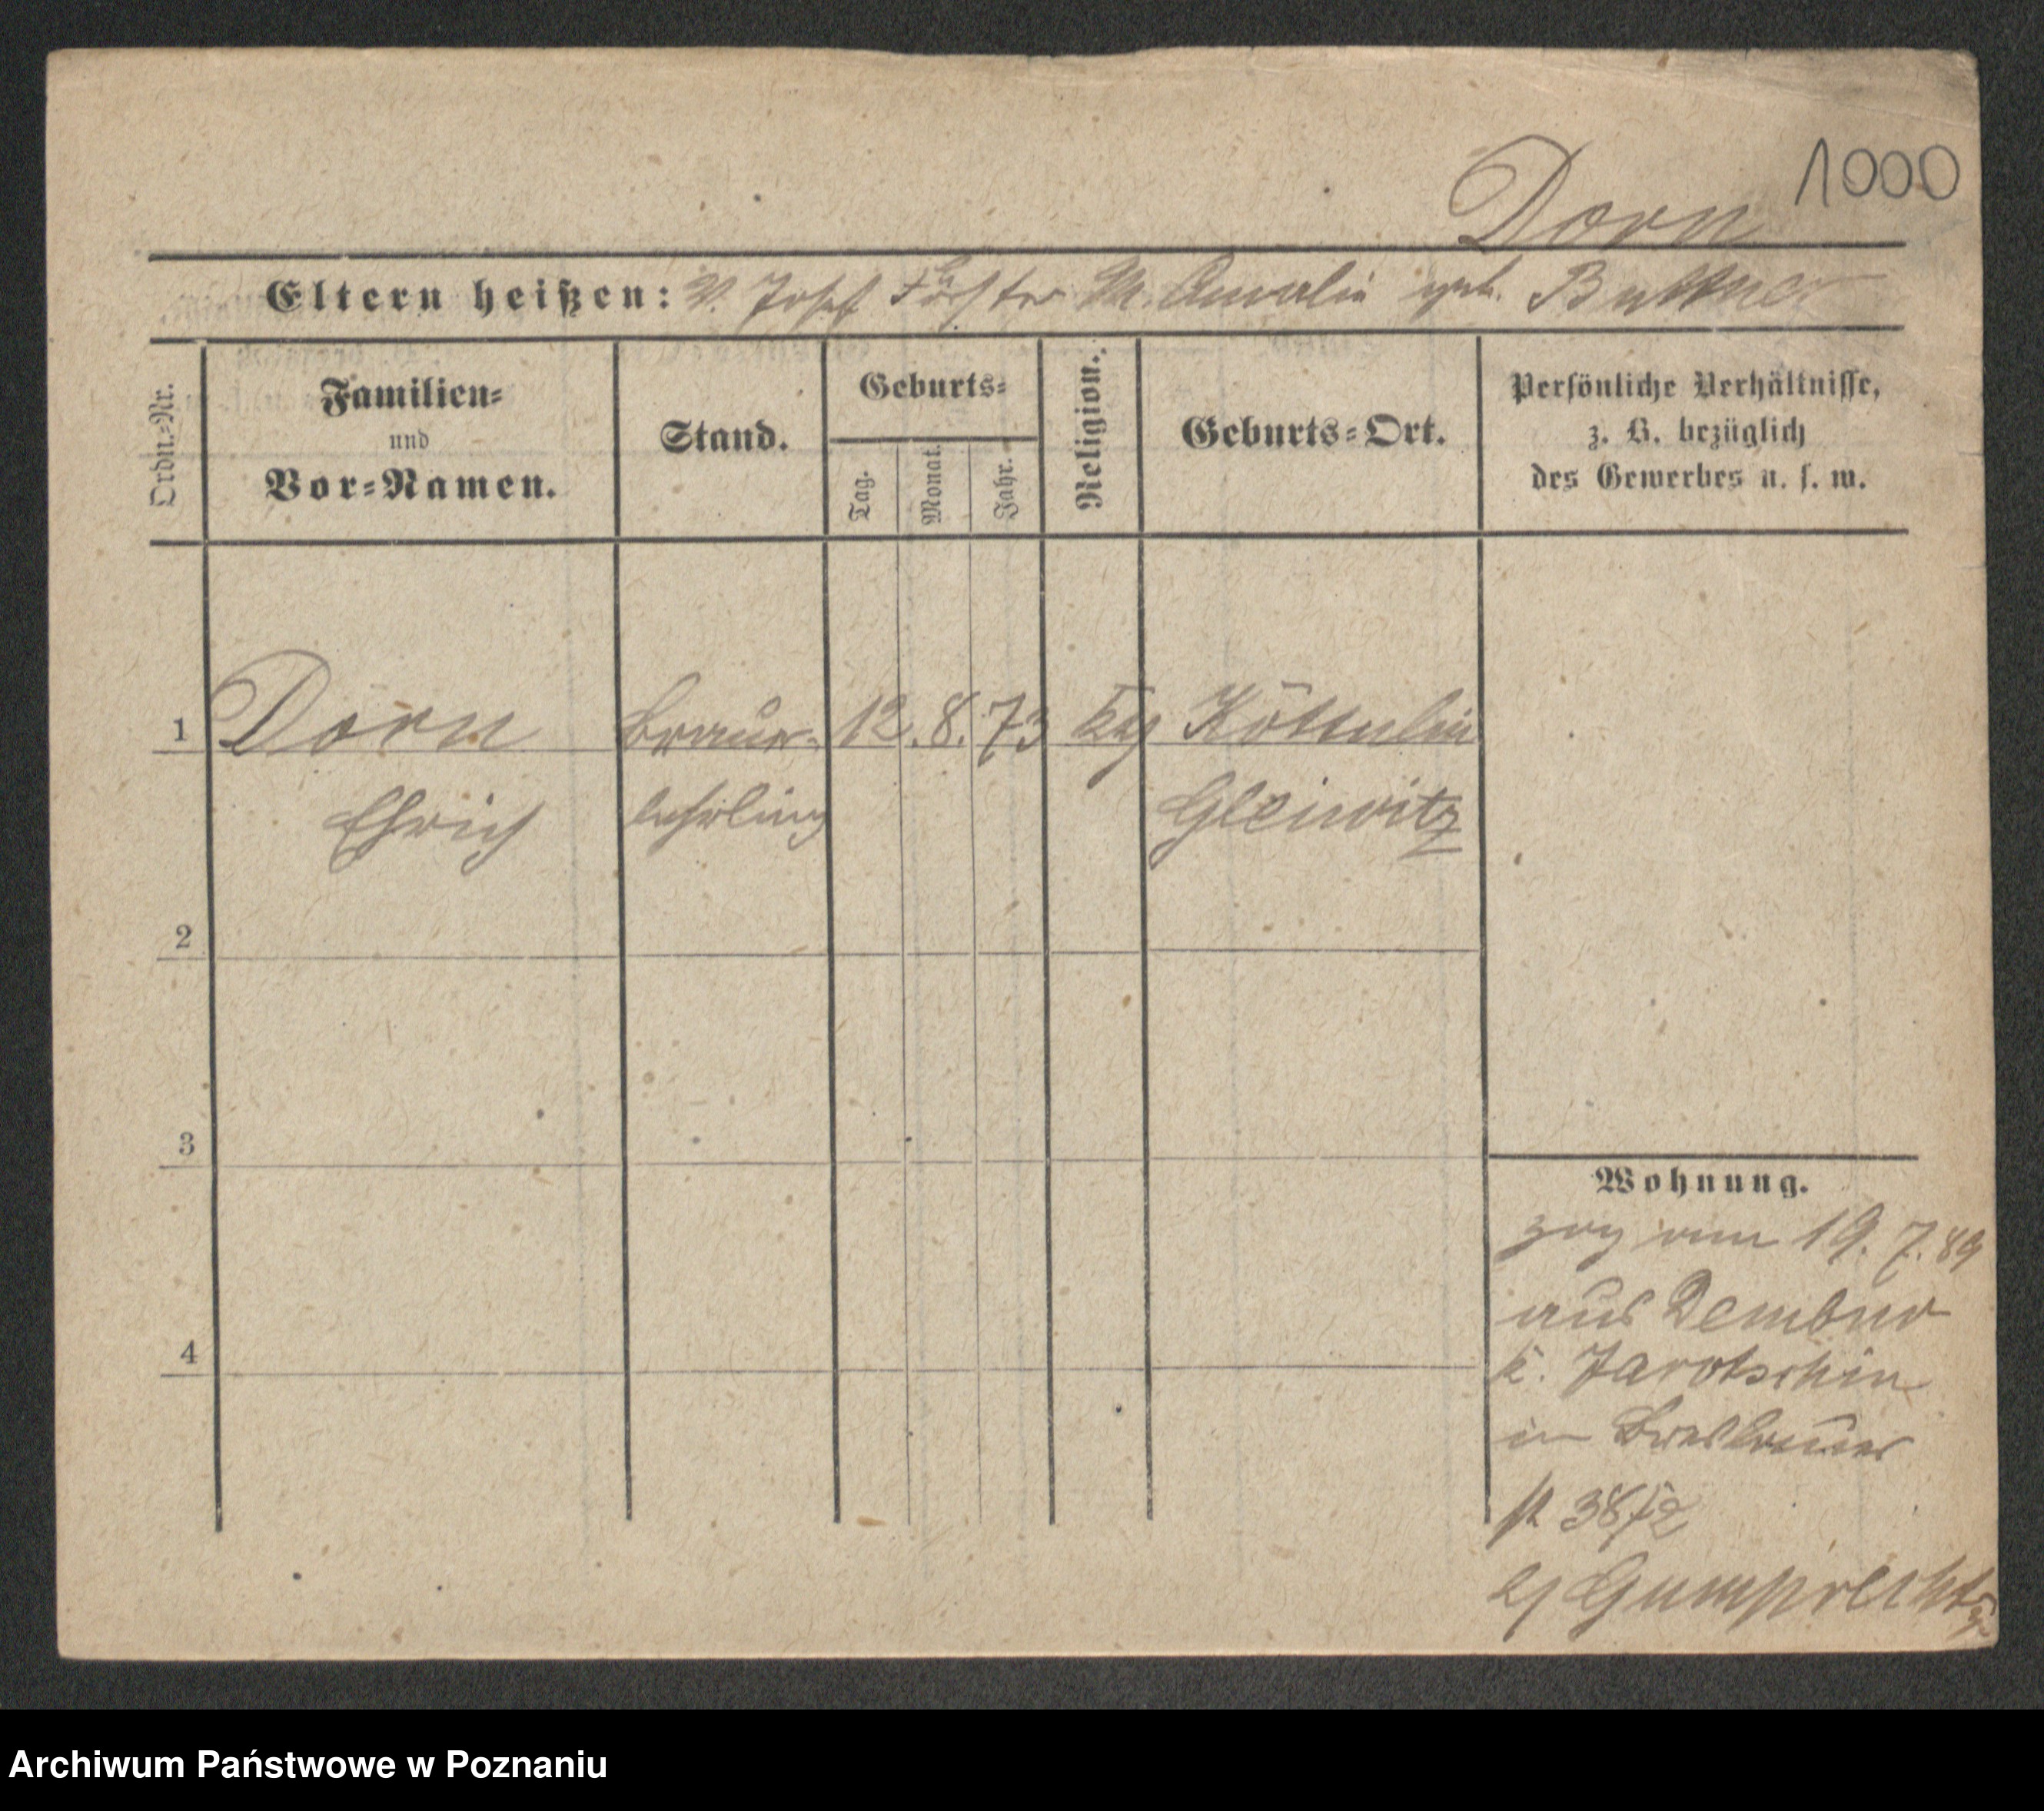 1000
Dorn
Eltern heißen: V. Josef Förster M. Amalie geb. Buttner
Ordn.-Nr.
Familien-
und
Vor-Namen.
Stand.
Geburts-
Tag.
Monat.
Jahr.
Religion.
Geburts-Ort.
Persönliche Verhältnisse,
z. B. bezüglich
des Gewerbes u. s. w.
1 Dorn Brauer- 12. 8. 73 kg
Ehrich lehrling Gleiwitz
2
3
4
Wohnung.
zog am 19. 7. 89
aus Dembno
K. Jarotschin
in Breslauer
st 38
Gumprecht
Archiwum Państwowe w Poznaniu